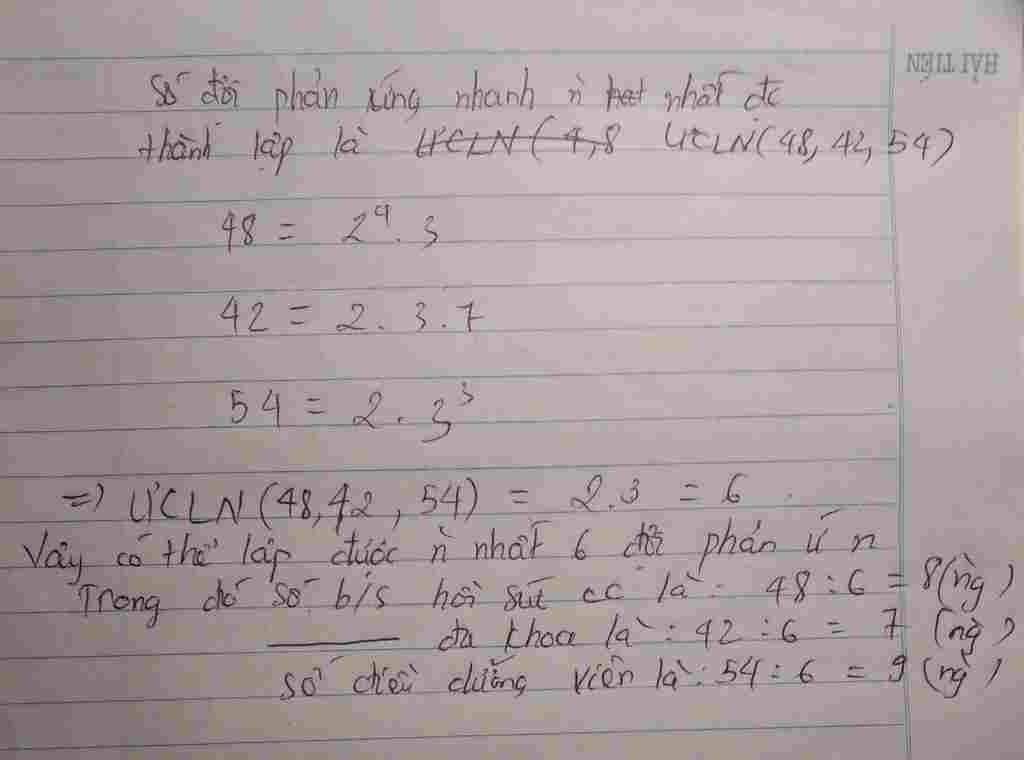 HẢI TIẾN
Số đội phản ứng nhanh ǹ nhất đc
thành lập là ƯCLN(4,8 ƯCLN(48, 42, 54)
48 = 2⁴. 3
42 = 2. 3. 7
54 = 2. 3³
=) ƯCLN(48, 42, 54) = 2.3 = 6.
Vậy có thể lập được ǹ nhất 6 đội phản ứ n
Trong đó số b/s hồi sức cc là: 48 : 6 = 8 (ng̀)
đa khoa là: 42 : 6 = 7 (ng̀)
số điều dưỡng viên là: 54 : 6 = 9 (ng̀)